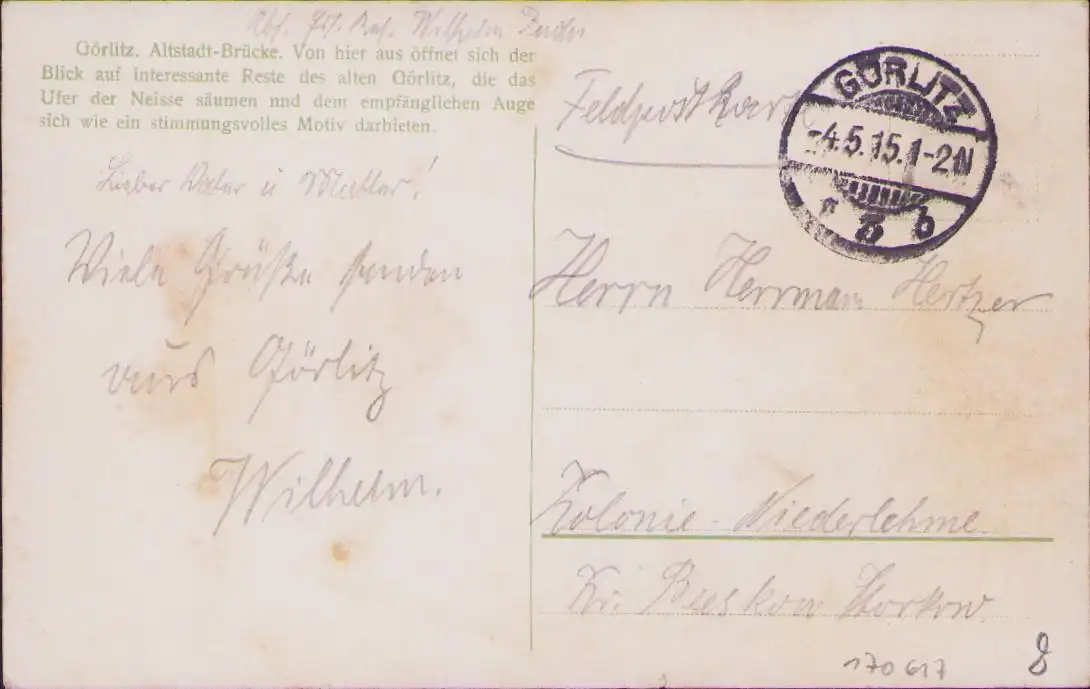 Abs. Wilhelm
Görlitz. Altstadt-Brücke. Von hier aus öffnet sich der
Blick auf interessante Reste des alten Görlitz, die das
Ufer der Neisse säumen nnd dem empfänglichen Auge
sich wie ein stimmungsvolles Motiv darbieten.
Lieber Vater u Mutter!
Viele Grüße senden
aus Görlitz
Wilhelm.
Feldpostkart
GÖRLITZ
-4.5.15.1-2N
* 3 b
Herrn Herrman Hertzer
Kolonie-Niederlehme
Kr. Beeskow Storkow
170617
8